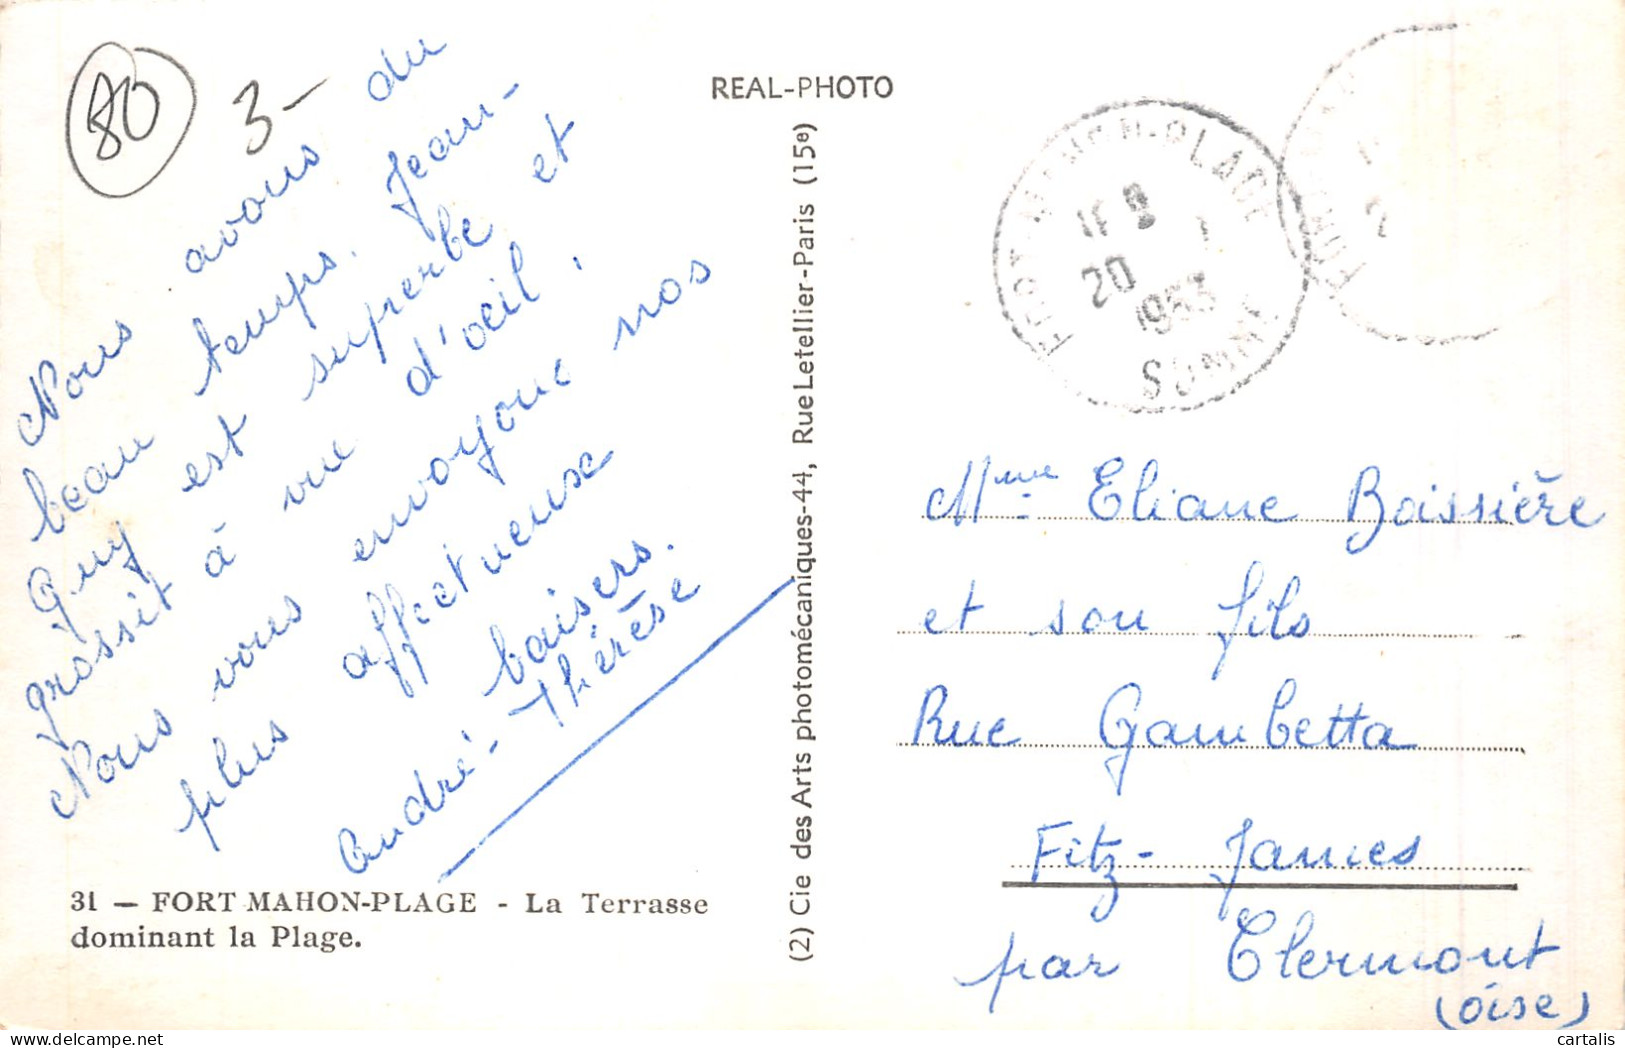 80
3-
Nous avons du
beau temps. Jean-
Guy est superbe et
grossit à vue d'oeil,
Nous vous envoyons nos
plus affectueux
baisers.
André-Thérèse
31 — FORT MAHON-PLAGE - La Terrasse
dominant la Plage.
REAL-PHOTO
(2) Cie des Arts photomécaniques-44, Rue Letellier-Paris (15e)
PLAGE
20
1953
SOMME
Mme Eliane Boissière
et son fils
Rue Gambetta
Fitz-James
par Clermont
(Oise)
cartalis
delcampe.net